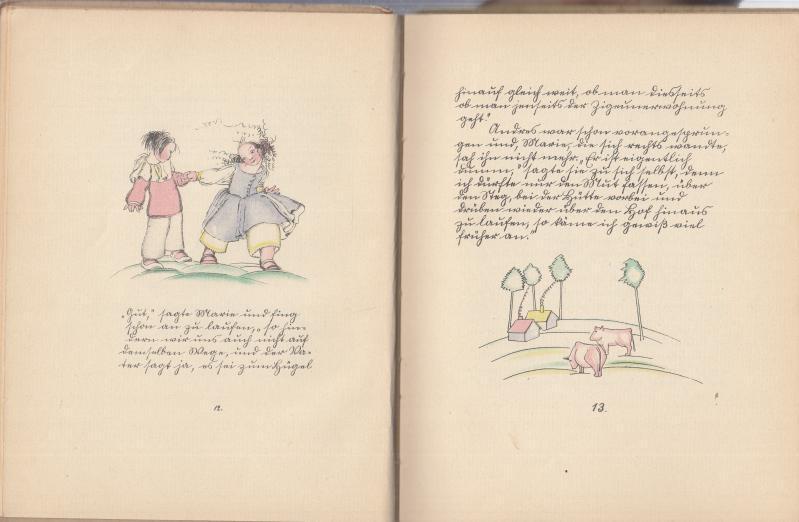 „Gut,“ sagte Marie und fing
schon an zu laufen, „so hin-
dern wir uns auch nicht auf
demselben Wege, und der Va-
ter sagt ja, es sei zum Hügel
12.
hinauf gleich weit, ob man diesseits
ob man jenseits der Zigeunerwohnung
geht.“
Andres war schon vorangesprun-
gen und, Marie, die sich rechts wandte,
sah ihn nicht mehr. „Er ist eigentlich
dumm,“ sagte sie zu sich selbst, denn
ich dürfte nur den Mut fassen, über
den Steg, bei der Hütte vorbei und
drüben wieder über den Hof hinaus
zu laufen, so käme ich gewiß viel
früher an.“
13.